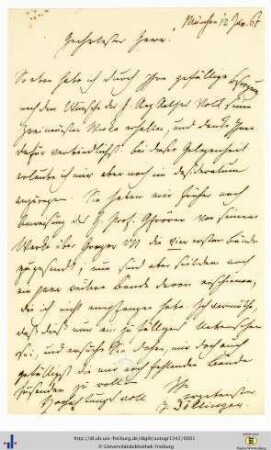 München 12 Jan. 61
Geehrtester Herr!
So eben habe ich durch Ihre gefällige
nach dem Wunsche des H.
Werke erhalten, und danke Ihnen
dafür verbindlichst. bei dieser Gelegenheit
erlaube ich mir aber noch ein desideratum
anzuzeigen. Sie haben mir früher nach
Anweisung des H. Prof. Gfrörer von seinem
Werke über Gregor VII die vier ersten bände
zugesandt, nun sind aber seitdem noch
ein paar weitere bände davon erschienen,
die ich nicht empfangen habe. Ich vermuthe,
daß dieß nur ein zufälliges Uebersehen
sei, und ersuche Sie daher, mir doch auch
gefälligst die mir noch fehlenden bände
zusenden zu wollen
Hochachtungsvoll
Ihr
ergebenster
J. Döllinger.
http://dl.ub.uni-freiburg.de/diglit/autogr1342/0001
Universitätsbibliothek Freiburg